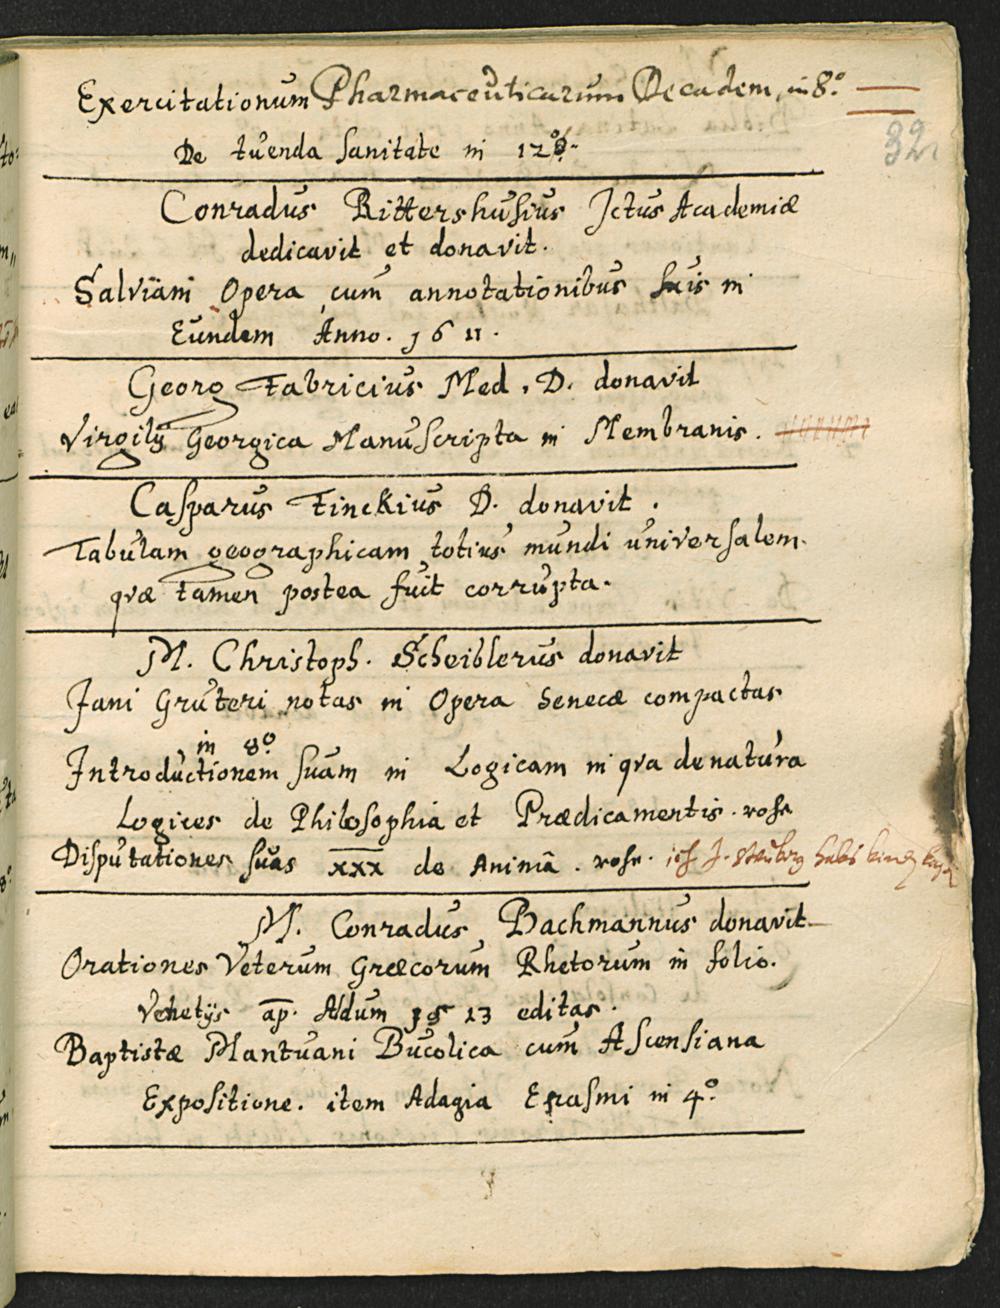 Exercitationum Pharmaceuticarum Decadem, in 8.o
32.
De tuenda sanitate in 12o.
Conradus Rittershusius Jctus Academiæ
dedicavit et donavit.
Salviani Opera cum annotationibus suis in
Eundem Anno. 1611.
Georg Fabricius Med. D. donavit
Virgilij Georgica Manuscripta in Membranis.
Casparus Finckius D. donavit.
Tabulam geographicam totius mundi universalem.
qvæ tamen postea fuit corrupta.
M. Christoph. Scheiblerus donavit
Jani Gruteri notas in Opera Senecæ compactas
in 8o
Introductionem suam in Logicam in qva de natura
Logices de Philosophia et Prædicamentis.
Disputationes suas xxx de Animâ.
M. Conradus Bachmannus donavit
Orationes Veterum Græcorum Rhetorum in folio.
Venetijs ap. Aldum 1513 editas.
Baptistæ Mantuani Bucolica cum Ascensiana
Expositione. item Adagia Erasmi in 4.o